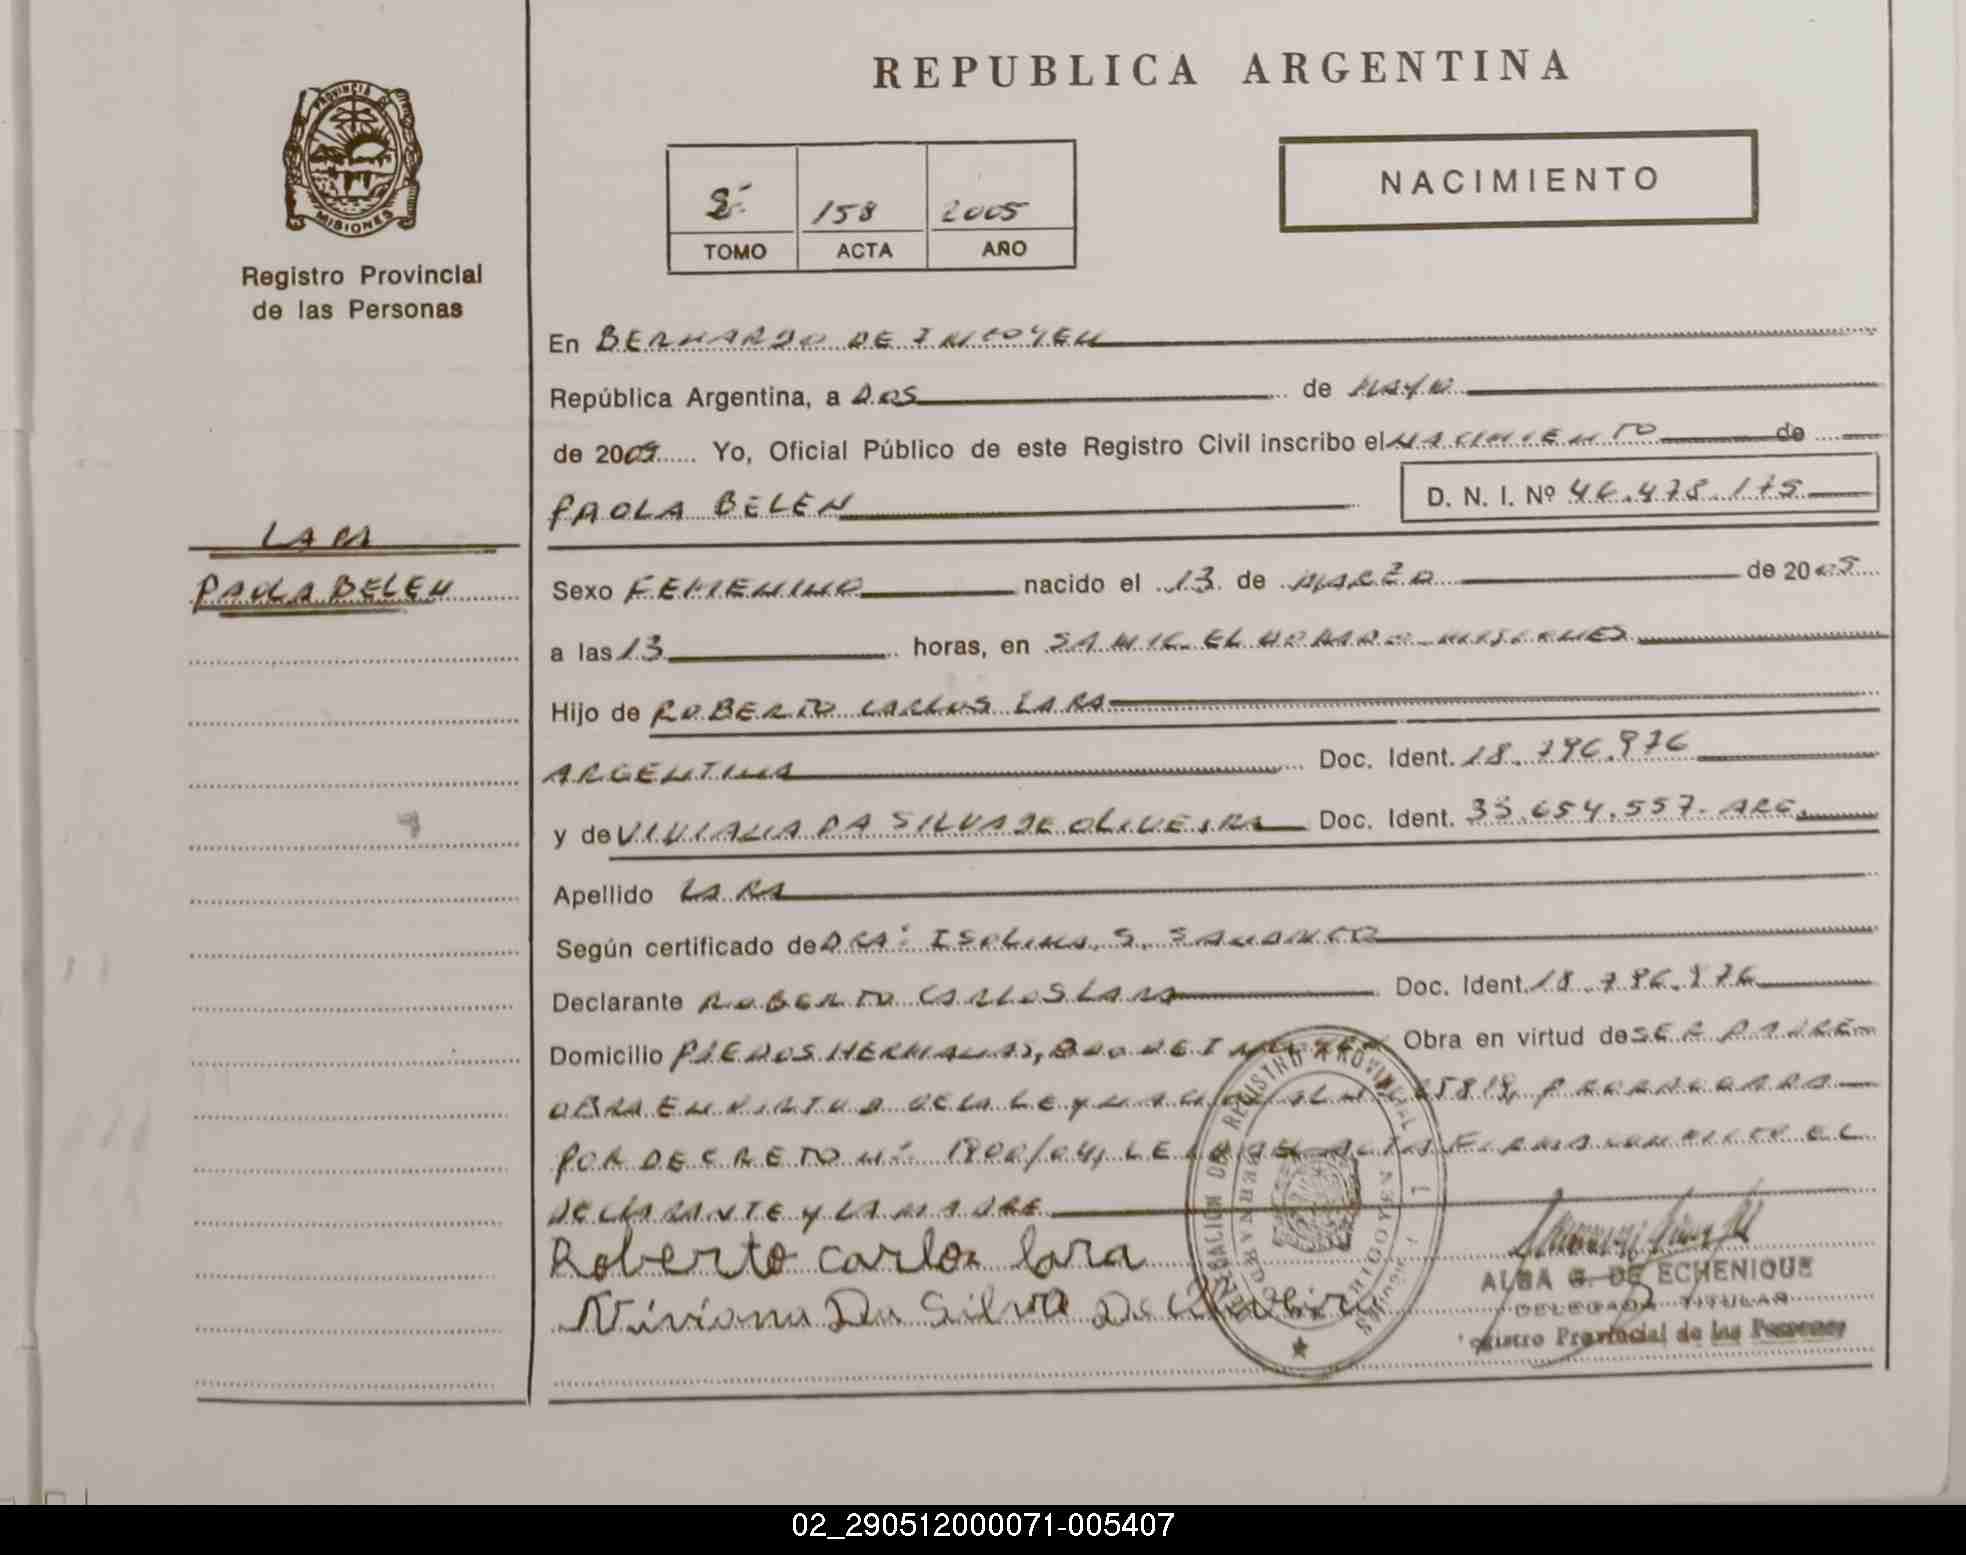 REPUBLICA ARGENTINA
PROVINCIA DE
MISIONES
Registro Provincial
de las Personas
NACIMIENTO
2º 158 2005
TOMO ACTA AÑO
En BERNARDO DE IRIGOYEN
República Argentina, a DOS de MAYO
de 2005 Yo, Oficial Público de este Registro Civil inscribo el NACIMIENTO de
PAOLA BELEN D. N. I. Nº 46.478.175
LARA
PAOLA BELEN
Sexo FEMENINO nacido el 13 de MARZO de 2005
a las 13 horas, en SAMIC ELDORADO MISIONES
Hijo de ROBERTO CARLOS LARA
ARGENTINA Doc. Ident. 18.796.976
y de VIVIANA DA SILVA DE OLIVEIRA Doc. Ident. 33.654.557. ARG.
Apellido LARA
Según certificado de DRA: ISOLINA S.
Declarante ROBERTO CARLOS LARA Doc. Ident. 18.796.976
Domicilio PJE DOS HERMANAS, BDO DE IRIGOYEN Obra en virtud de SER PADRE
OBRA EN VIRTUD DE LA LEY NACIONAL Nº 25819, PRORROGADA
POR DECRETO Nº 1800/04, LEIDA EL ACTA FIRMA CONMIGO EL
DECLARANTE Y LA MADRE
Roberto carlos lara
Viviana Da Silva De Oliveira
DELEGACION DEL REGISTRO PROVINCIAL
BERNARDO DE IRIGOYEN
ALBA G. DE ECHENIQUE
DELEGADA TITULAR
Registro Provincial de las Personas
02_290512000071-005407